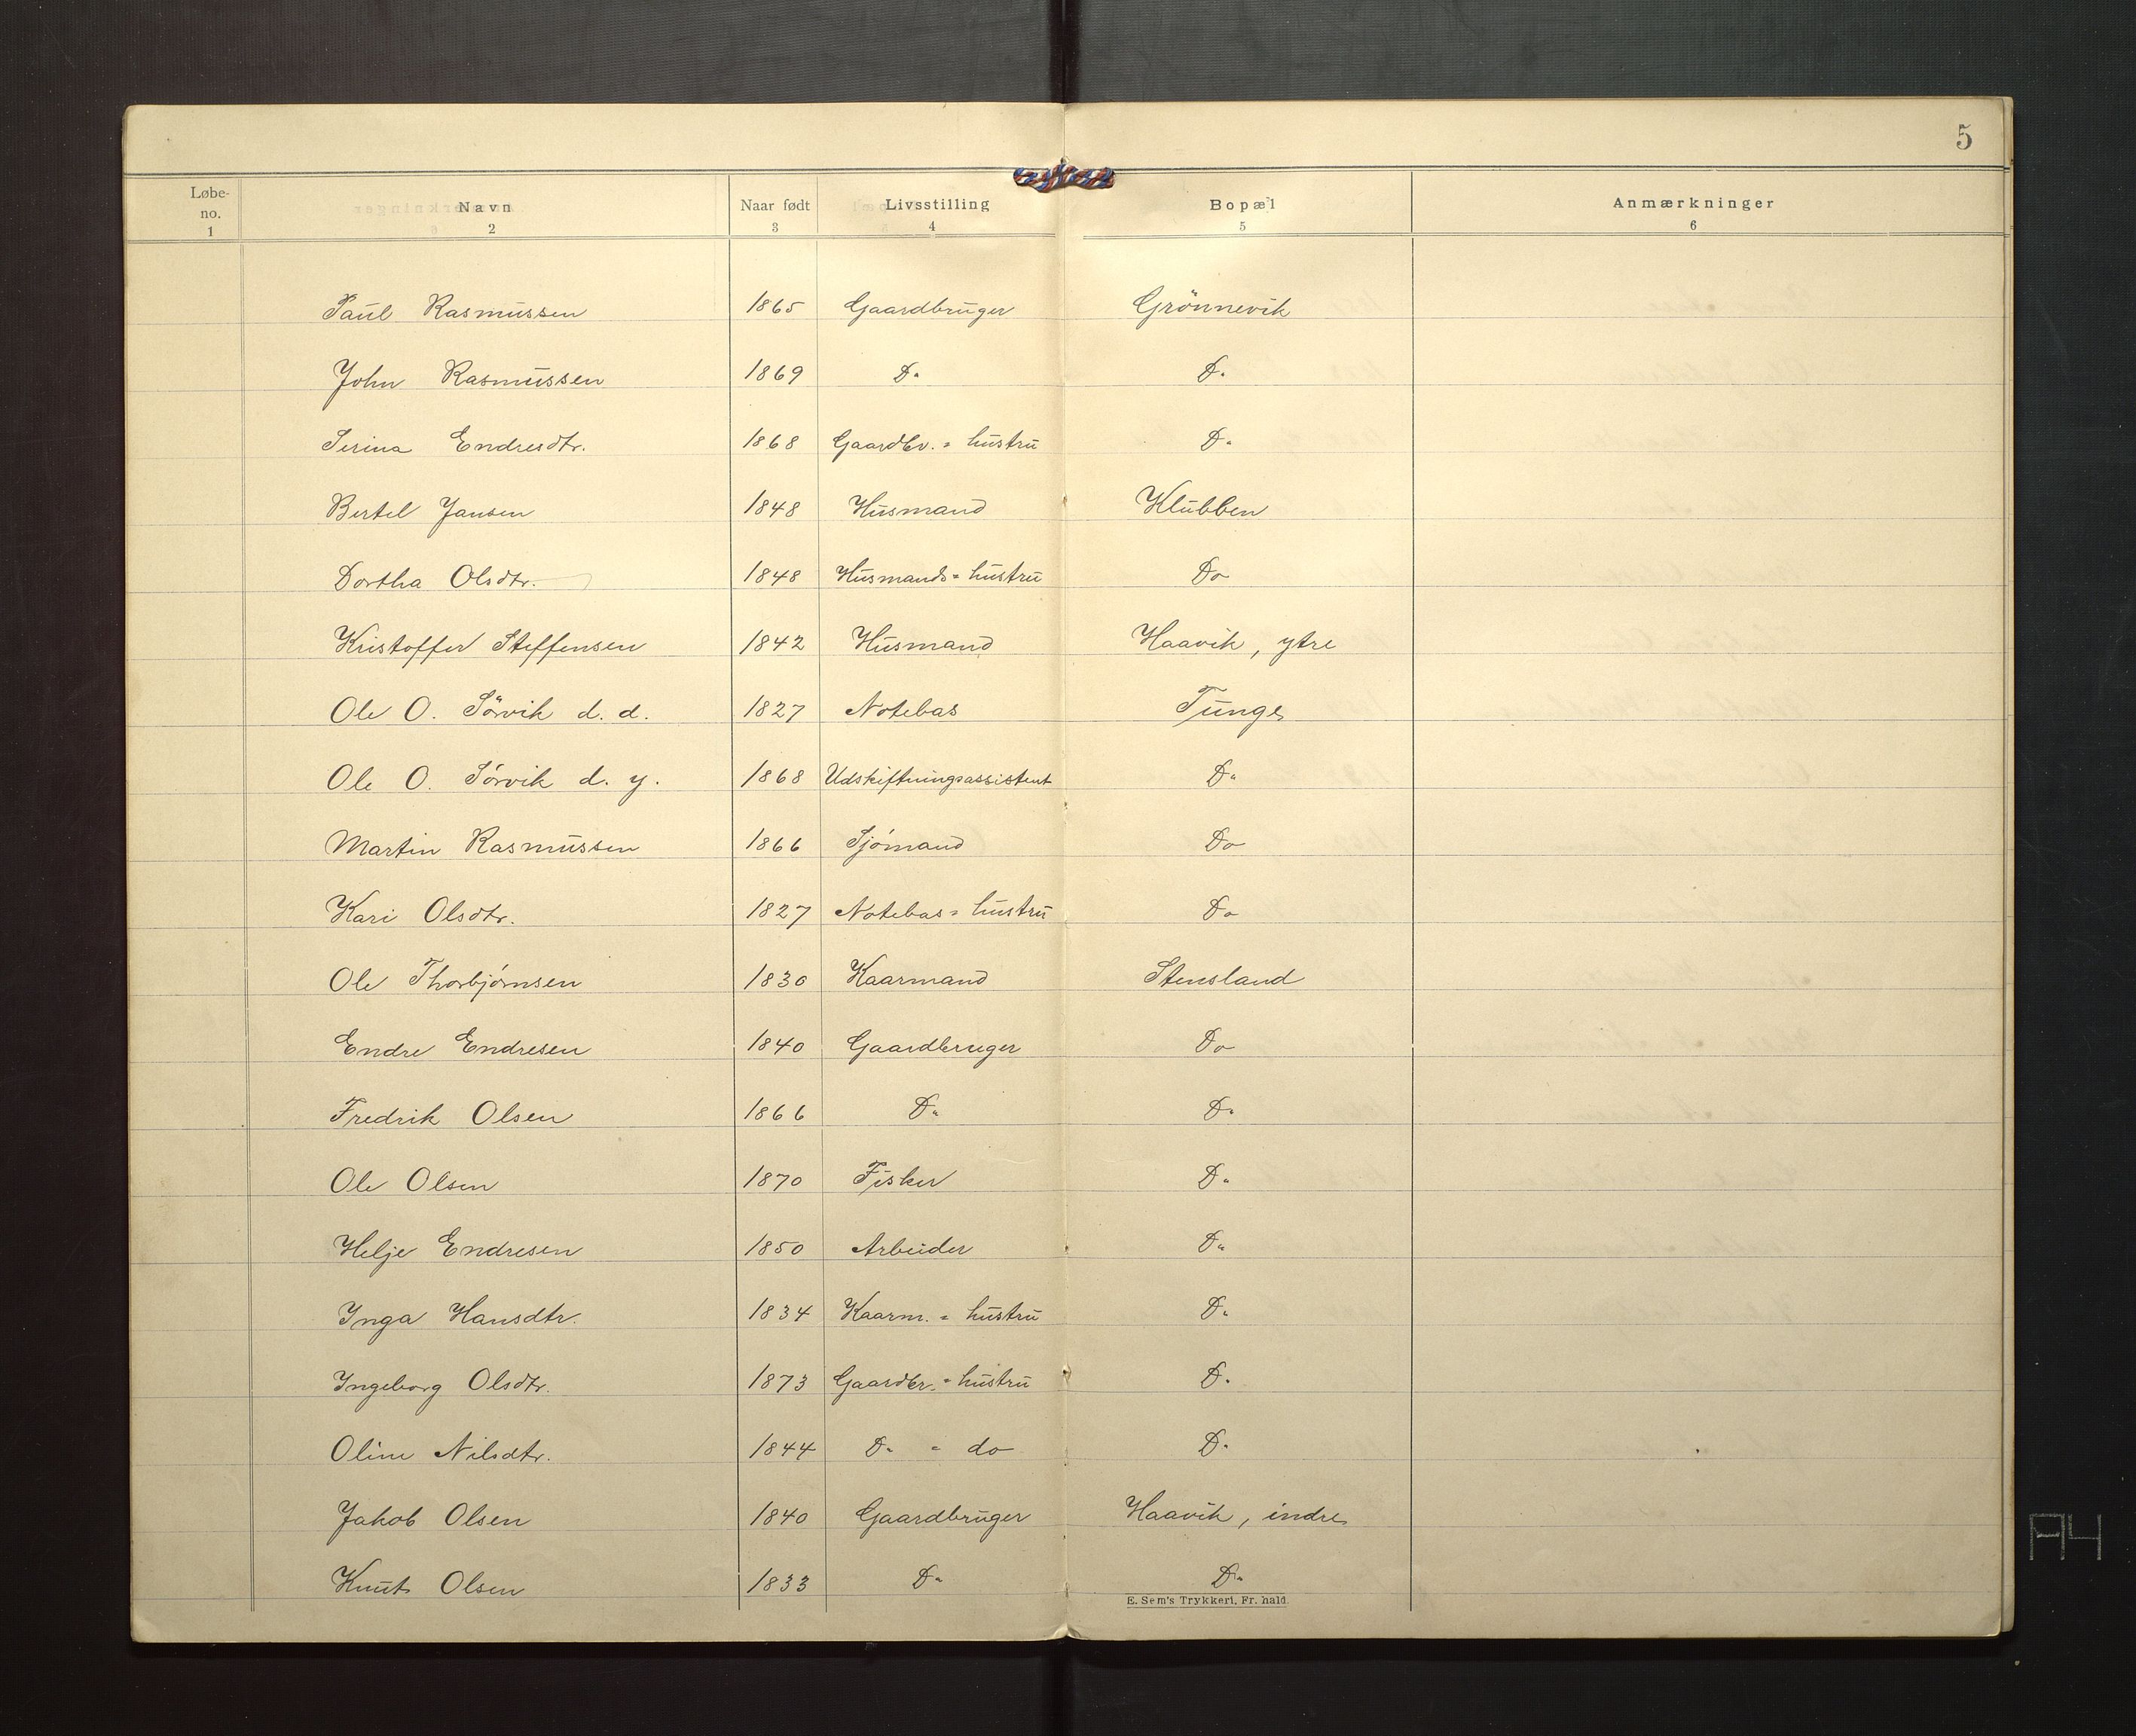 5
Løbe-no. Navn Naar født Livsstilling Bopæl Anmærkninger
1 2 3 4 5 6
Paul Rasmussen 1865 Gaardbruger Grönnevik
John Rasmussen 1869 Do Do
Serina Endresdtr. 1868 Gaardbr. = hustru Do
Bertel Jansen 1848 Husmand Klubben
Dortha Olsdtr. 1848 Husmands = hustru Do
Kristoffer Steffensen 1842 Husmand Haavik, ytre
Ole O. Sörvik d. d. 1827 Notebas Tunge
Ole O. Sörvik d. y. 1868 Udskiftningsassistent Do
Martin Rasmussen 1866 Sjömand Do
Kari Olsdtr. 1827 Notebas = hustru Do
Ole Thorbjörnsen 1830 Kaarmand Stensland
Endre Endresen 1840 Gaardbruger Do
Fredrik Olsen 1866 Do Do
Ole Olsen 1870 Fisker Do
Helje Endresen 1850 Arbeider Do
Inga Hansdtr. 1834 Kaarm. = hustru Do
Ingeborg Olsdtr. 1873 Gaardbr. = hustru Do
Oline Nilsdtr. 1844 Do = do Do
Jakob Olsen 1840 Gaardbruger Haavik, indre
Knut Olsen 1833 Do Do
E. Sem's Trykkeri, Fr. hald.
A4